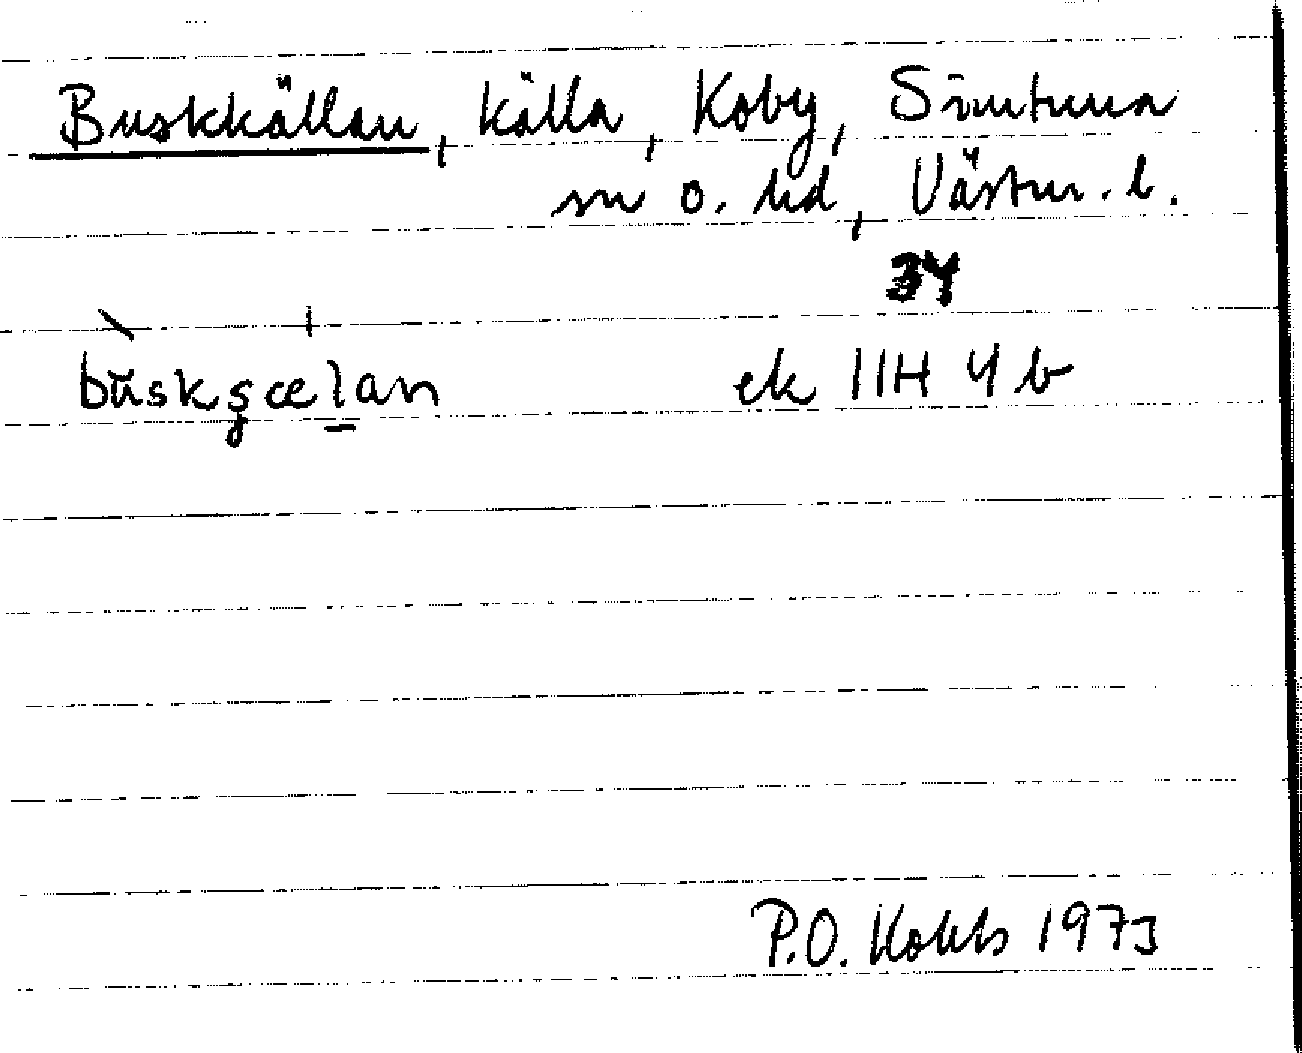 Buskkällan, källa, Koby, Simtuna
sn o. hd, Västm. l.
34
bùskşcelan ek 11H 4 b
P.O. 1973